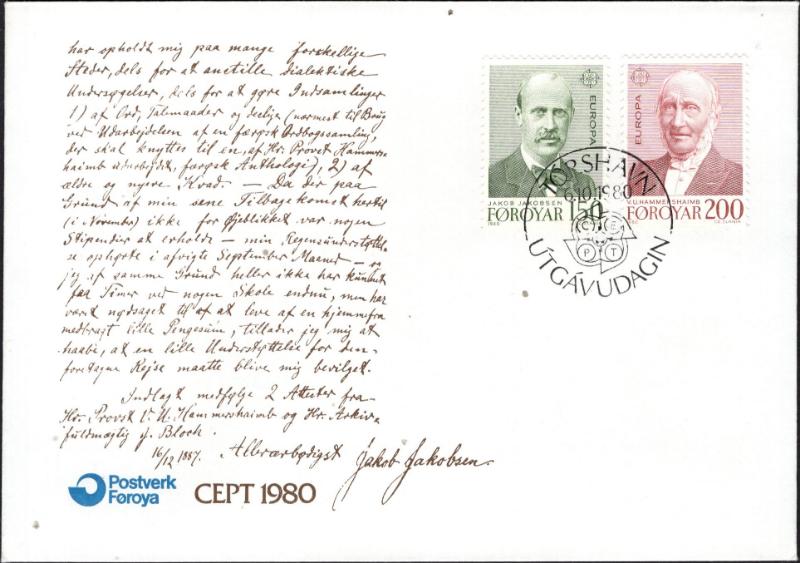 har opholdt mig paa mange forskellige
Steder, dels for at anstille dialektiske
Undersøgelser, dels for at gøre Indsamlinger
1) af Ord, Talemaader og deslign (nærmest til Brug
ved Udarbejdelsen af en færøsk Ordbogssamling,
der skal knyttes til en, af Hr. Provst Hammers-
haimb udarbejdet, færøsk Anthologi), 2) af
ældre og nyere Kvad. — Da der paa
Grund af min sene Tilbagekomst hertil
(i November) ikke for Øjeblikket var nogen
Stipendier at erholde — min Regensunderstøttel-
se ophørte i afvigte September Maaned — og
jeg af samme Grund heller ikke har kunnet
faa Timer ved nogen Skole endnu, men har
været nødsaget til at leve af en hjemmefra
medbragt lille Pengesum, tillader jeg mig at
haabe, at en lille Understøttelse for den
foretagne Rejse maatte blive mig bevilget.
Indlagt medfølge 2 Attester fra
Hr. Provst V. U. Hammershaimb og Hr. Arkiv-
fuldmægtig J. Bloch.
16/12 1887. Allerærbødigst Jakob Jakobsen.
Postverk
Føroya
CEPT 1980
EUROPA
JAKOB JAKOBSEN
FØROYAR 150
1980
EUROPA
V.U. HAMMERSHAIMB
FØROYAR 200
1980
CZ. SLANIA
TÓRSHAVN
6.10.1980
C E
P T
ÚTGÁVUDAGIN